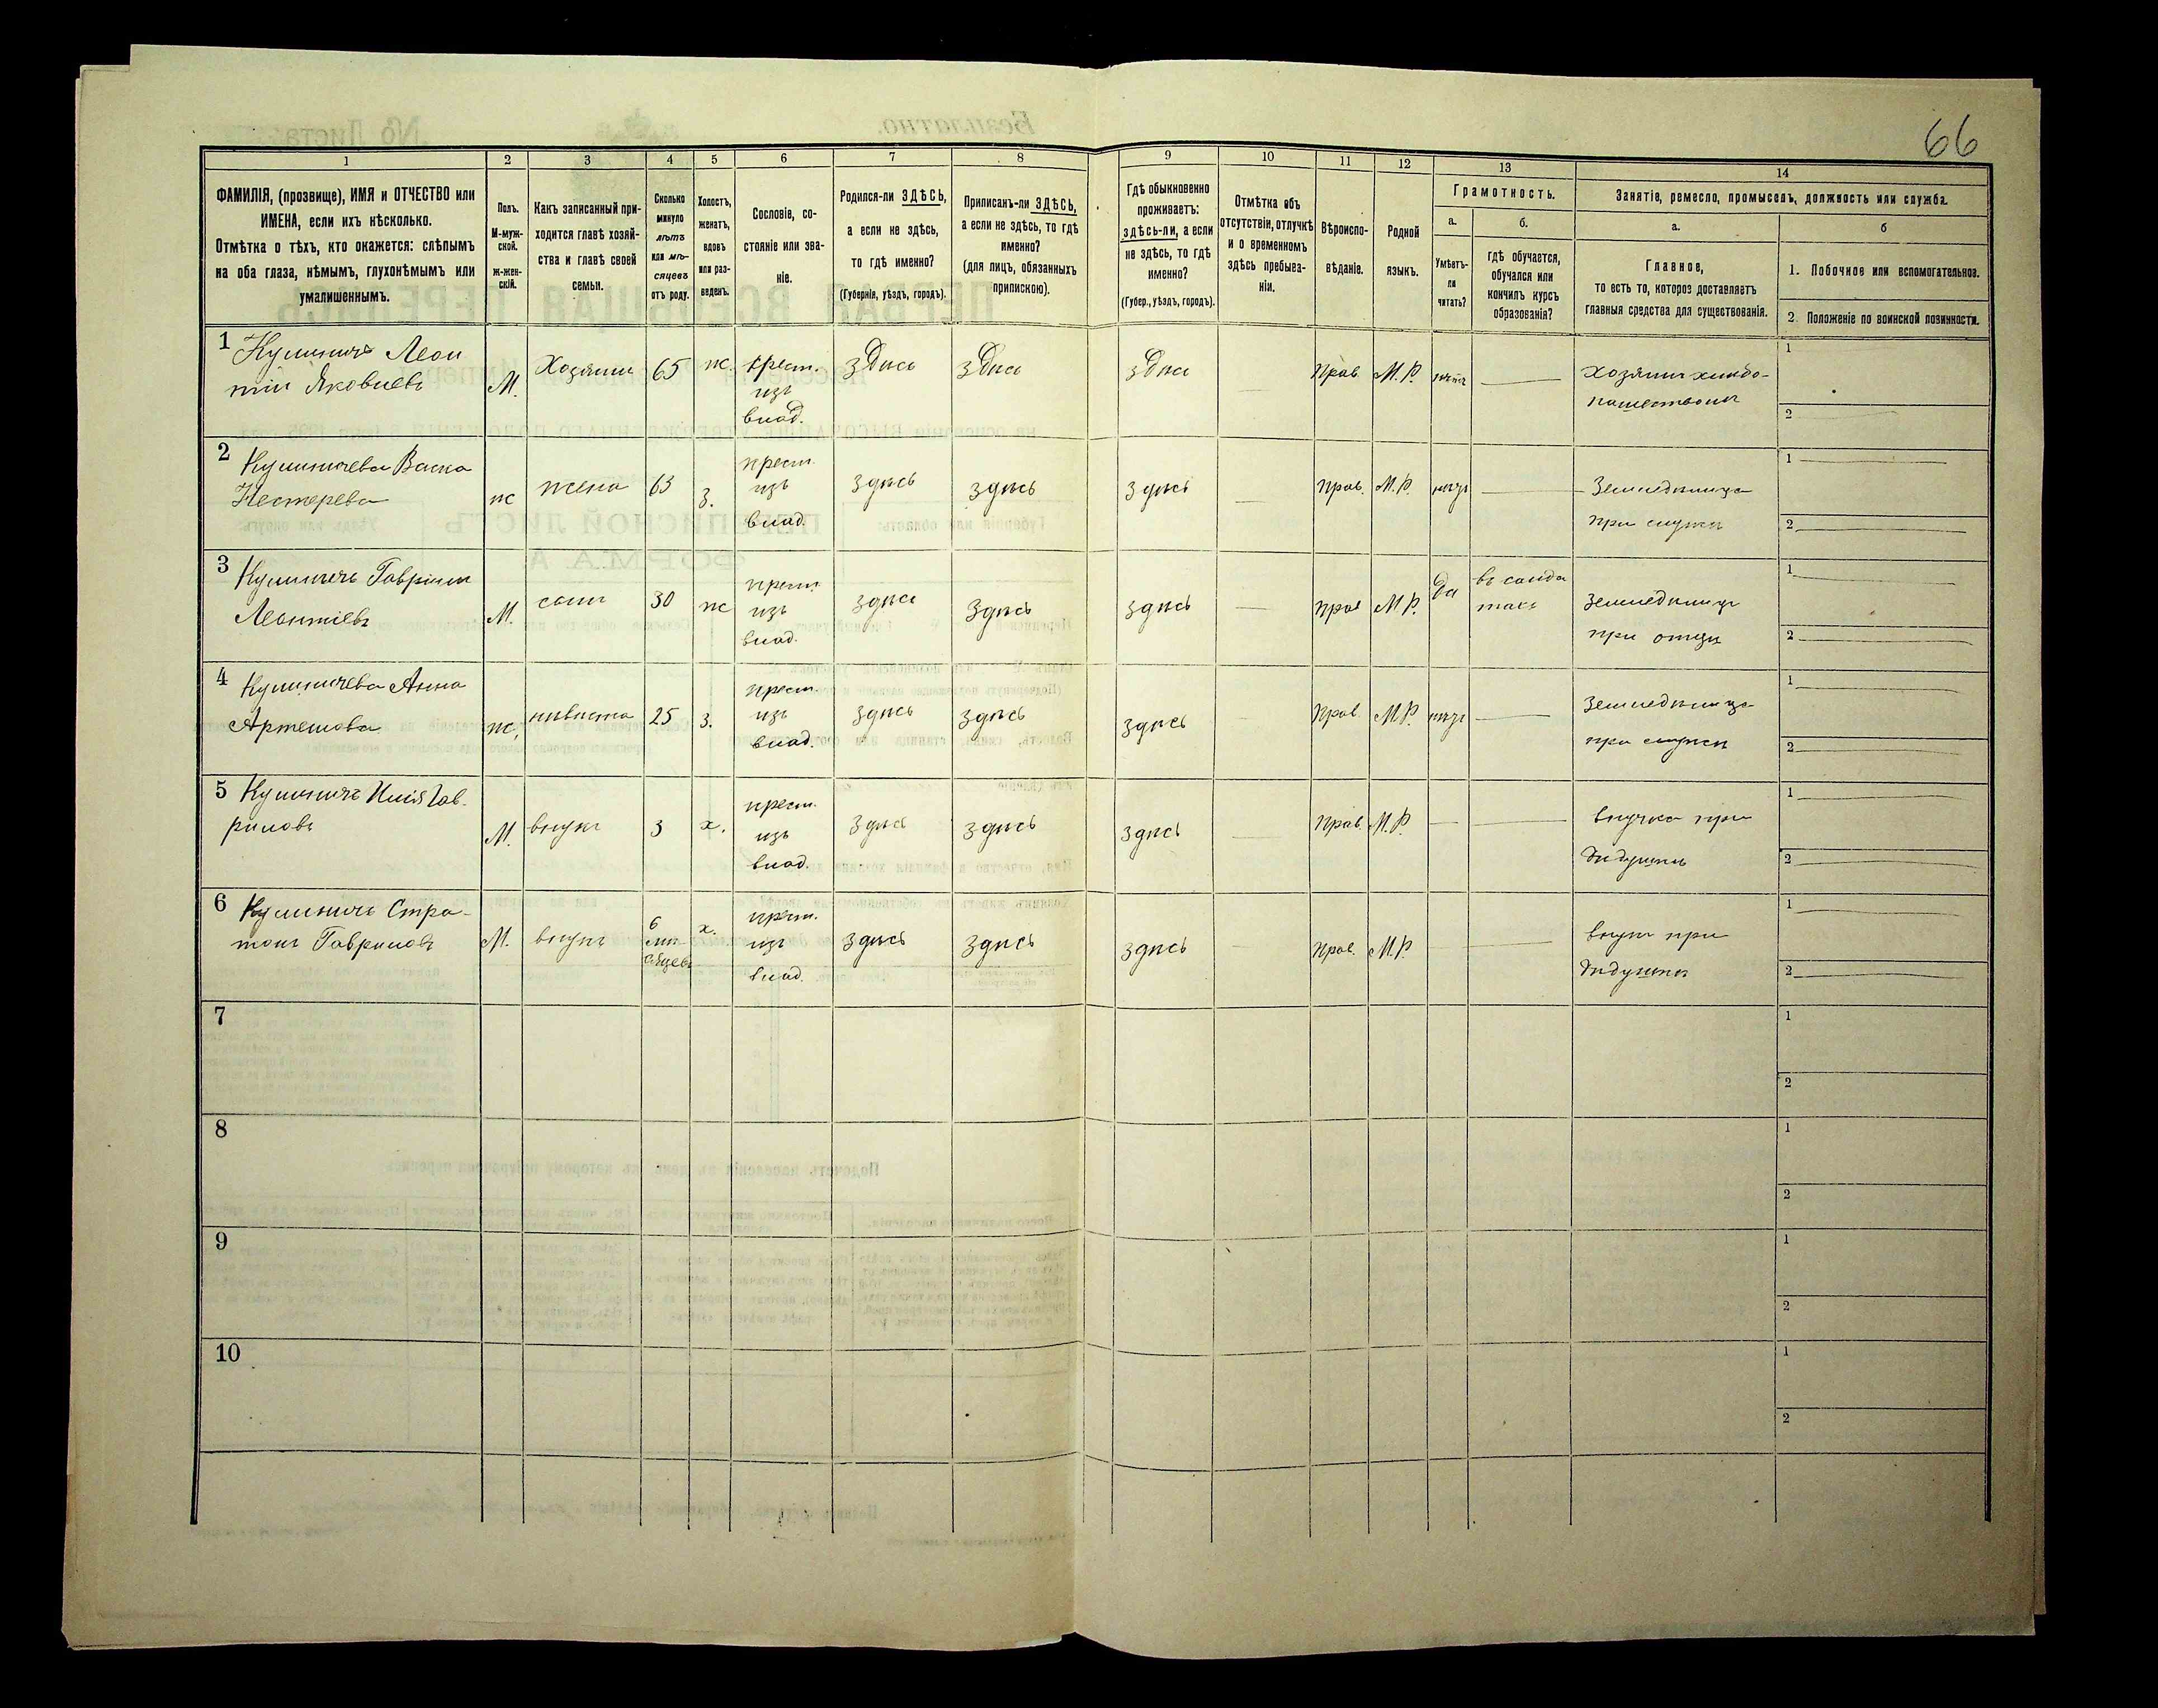 66
1 2 3 4 5 6 7 8 9 10 11 12 13 14
ФАМИЛІЯ, (прозвище), ИМЯ и ОТЧЕСТВО или
ИМЕНА, если ихъ нѣсколько.
Отмѣтка о тѣхъ, кто окажется: слѣпымъ
на оба глаза, нѣмымъ, глухонѣмымъ или
умалишеннымъ.
Полъ.
М-муж-
ской.
ж-жен-
скій.
Какъ записанный при-
ходится главѣ хозяй-
ства и главѣ своей
семьи.
Сколько
минуло
лѣтъ
или мѣ-
сяцевъ
отъ роду.
Холостъ,
женатъ,
вдовъ
или раз-
веденъ.
Сословіе, со-
стояніе или зва-
ніе.
Родился-ли ЗДѢСЬ,
а если не здѣсь,
то гдѣ именно?
(Губернія, уѣздъ, городъ).
Приписанъ-ли ЗДѢСЬ,
а если не здѣсь, то гдѣ
именно?
(для лицъ, обязанныхъ
припискою).
Гдѣ обыкновенно
проживаетъ:
здѣсь-ли, а если
не здѣсь, то гдѣ
именно?
(Губер., уѣздъ, городъ).
Отмѣтка объ
отсутствіи, отлучкѣ
и о временномъ
здѣсь пребыва-
ніи.
Вѣроиспо-
вѣданіе.
Родной
языкъ.
Грамотность.
а.
Умѣетъ-
ли
читать?
б.
гдѣ обучается,
обучался или
кончилъ курсъ
образованія?
Занятіе, ремесло, промыселъ, должность или служба.
а.
Главное,
то есть то, которое доставляетъ
главныя средства для существованія.
б
1. Побочное или вспомогательное.
2. Положеніе по воинской повинности.
1 Кулиничъ Леон
тій Яковлевъ
М.
Хозяинъ
65
ж.
крест.
изъ
влад.
здѣсь
здѣсь
здѣсь
Прав.
М.Р.
нѣтъ
Хозяинъ хлѣбо-
пашествомъ
1
2
2 Кулиничева Васса
Нестерева
ж
жена
63
з.
крест.
изъ
влад.
здѣсь
здѣсь
здѣсь
Прав.
М.Р.
Земледѣлица
при мужѣ
1
2
3 Кулиничъ Гавріилъ
Леонтіевъ
М.
сынъ
30
ж
крест.
изъ
влад.
здѣсь
здѣсь
здѣсь
Прав
М.Р.
да
въ солда
тахъ
Земледѣлецъ
при отцѣ
1
2
4 Кулиничева Анна
Артемова
ж.
невѣстка
25
з.
крест.
изъ
влад.
здѣсь
здѣсь
здѣсь
Прав.
М.Р.
Земледѣлица
при мужѣ
1
2
5 Кулиничъ Илія Гав-
риловъ
М.
внукъ
3
х.
крест.
изъ
влад.
здѣсь
здѣсь
здѣсь
Прав.
М.Р.
внучка при
дѣдушкѣ
1
2
6 Кулиничъ Стра-
тонъ Гавриловъ
М.
внукъ
6
мѣ-
сяцевъ
х.
крест.
изъ
влад.
здѣсь
здѣсь
здѣсь
Прав.
М.Р.
внукъ при
дѣдушкѣ
1
2
7
1
2
8
1
2
9
1
2
10
1
2